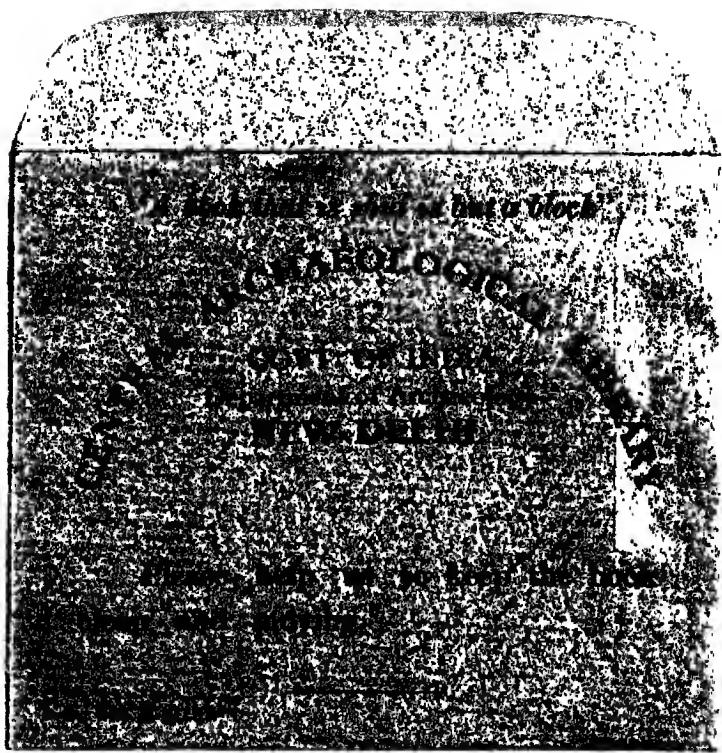 "A book that is shut is but a block"
CENTRAL ARCHAEOLOGICAL LIBRARY
GOVT. OF INDIA
Department of Archaeology
NEW DELHI
Please help us to keep the book
clean and moving.